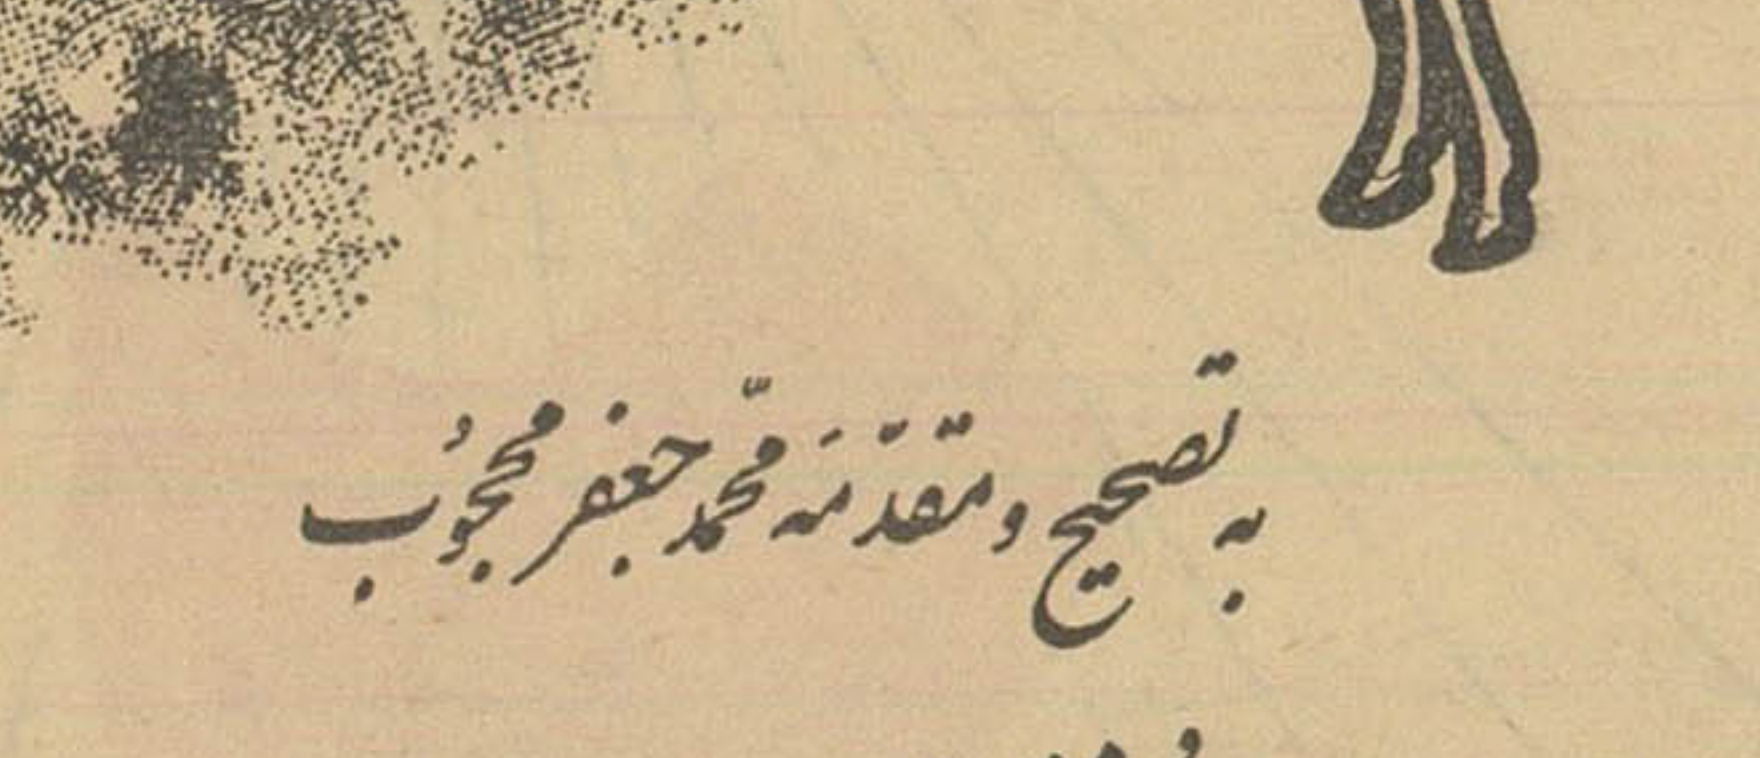 به تصحیح و مقدّمَه محمّد جعفر محجُوب